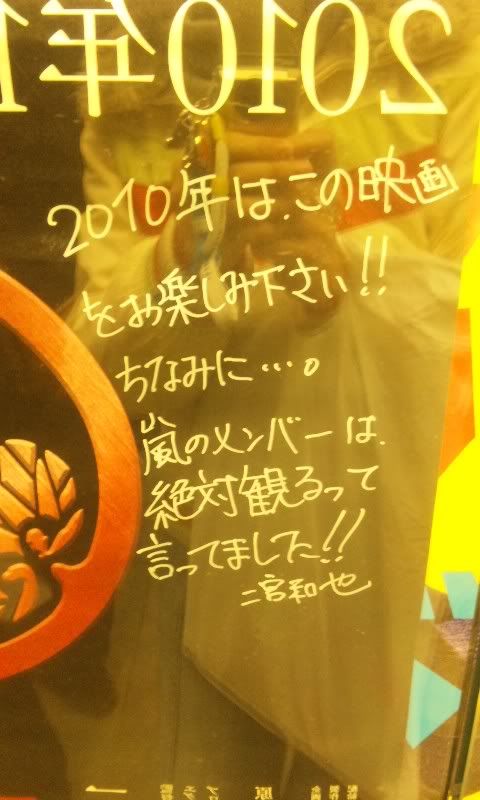 2010年1
2010年は、この映画
をお楽しみ下さい!!
ちなみに…。
嵐のメンバーは、
絶対観るって
言ってました!!
二宮和也